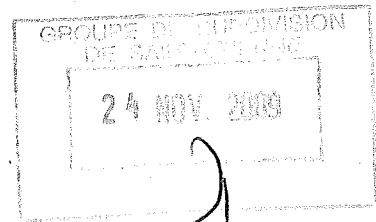 GROUPE DE SUBDIVISION
DE
24 NOV. 2009